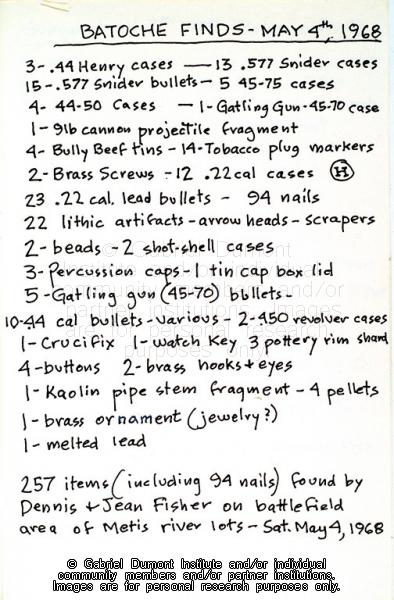 BATOCHE FINDS - MAY 4th, 1968
3- .44 Henry cases — 13 .577 Snider cases
15- .577 Snider bullets - 5 45-75 cases
4- 44-50 Cases — 1- Gatling Gun-45-70 case
1- 9lb cannon projectile fragment
4- Bully Beef tins - 14-Tobacco plug markers
2- Brass Screws - 12 .22cal cases H
23 .22 cal. lead bullets - 94 nails
22 lithic artifacts - arrow heads - scrapers
2- beads - 2 shot-shell cases
3- Percussion caps - 1 tin cap box lid
5- Gatling gun (45-70) bullets -
10-44 cal bullets - various - 2-450 revolver cases
1- Crucifix 1- watch Key 3 pottery rim shard
4- buttons 2- brass hooks + eyes
1- Kaolin pipe stem fragment - 4 pellets
1- brass ornament (jewelry?)
1- melted lead
257 items (including 94 nails) found by
Dennis + Jean Fisher on battlefield
area of Metis river lots - Sat. May 4, 1968
© Gabriel Dumont Institute and/or individual
community members and/or partner institutions.
Images are for personal research purposes only.
© Gabriel Dumont
Institute and/or individual
community members and/or
partner institutions. Images
are for personal research
purposes only.